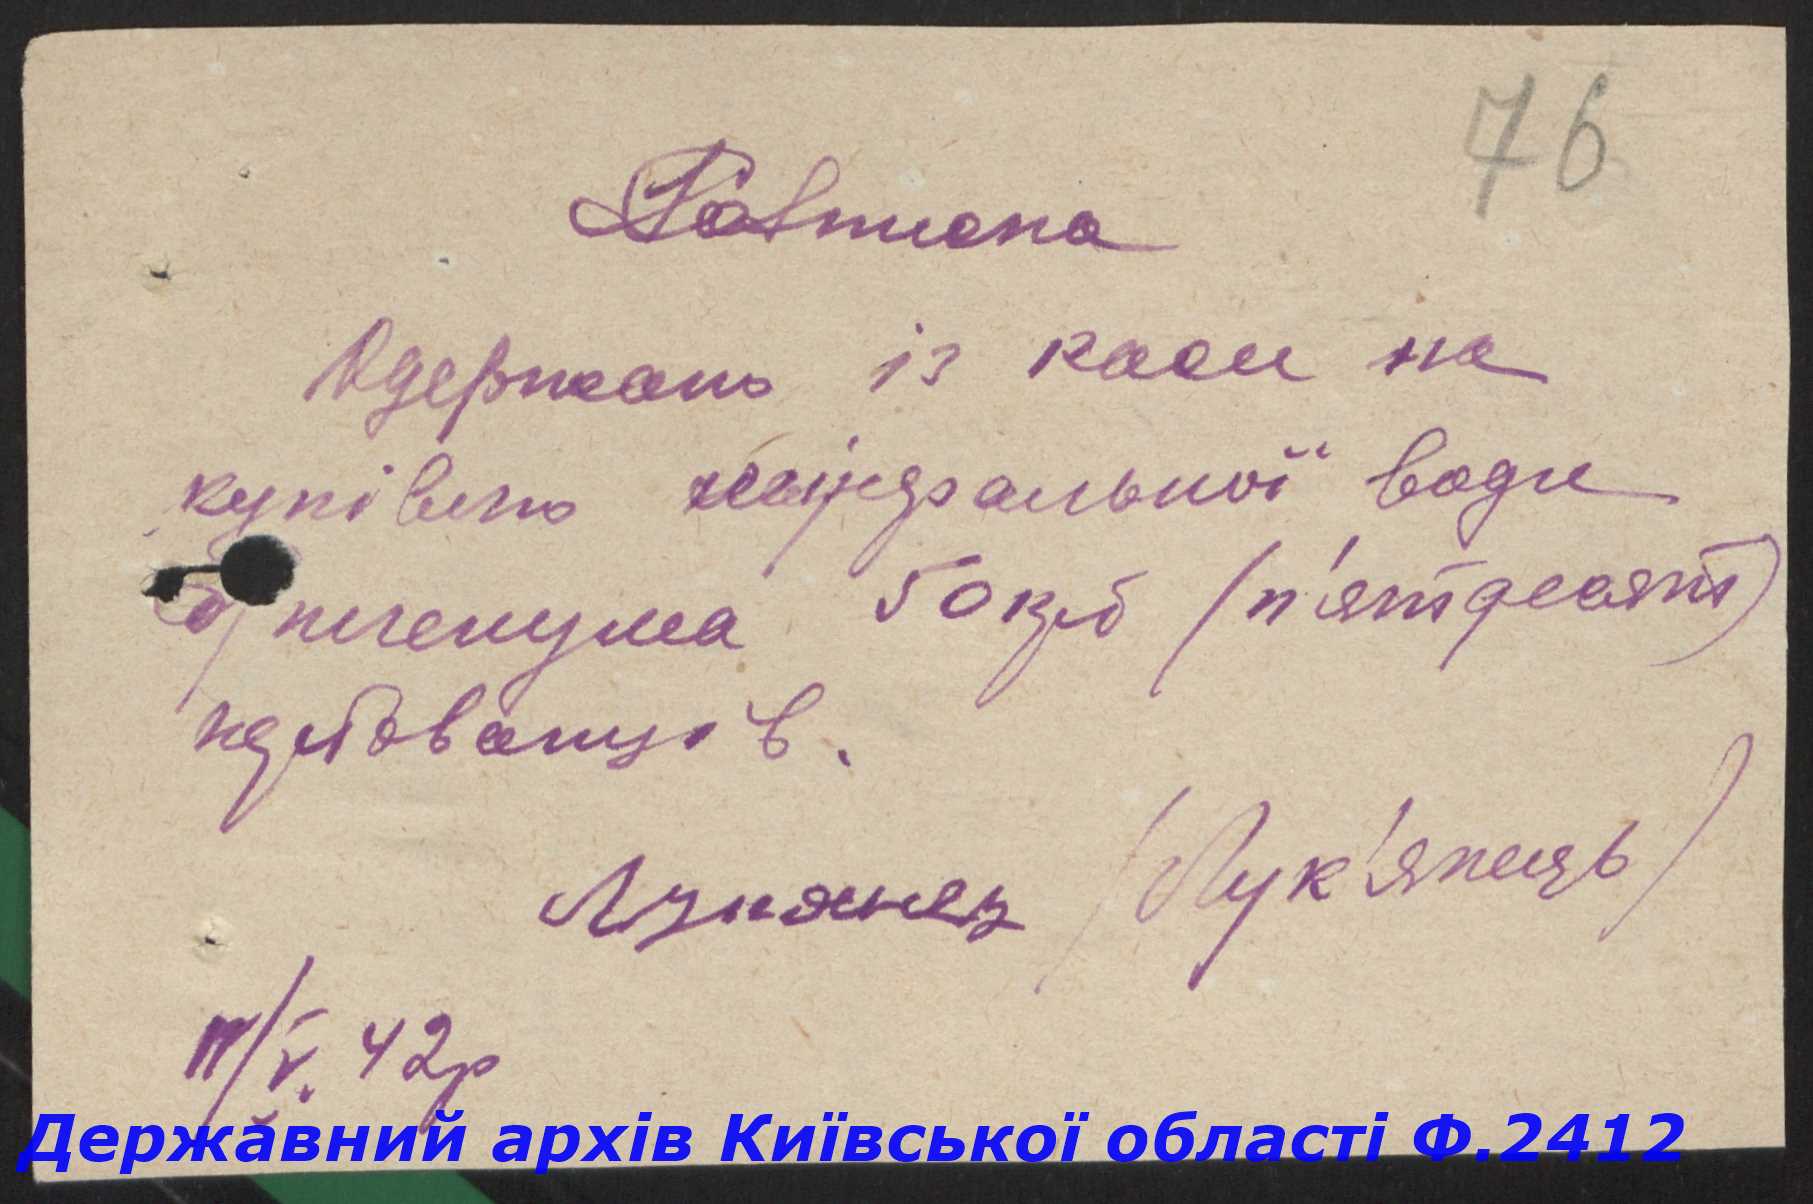 76
Розписка
Одержано із каси на
купівлю мінеральної води
50 крб (п'ятдесят)
карбованців.
Лукянец /Лук'янець/
11/V. 42р
Державний архів Київської області Ф.2412